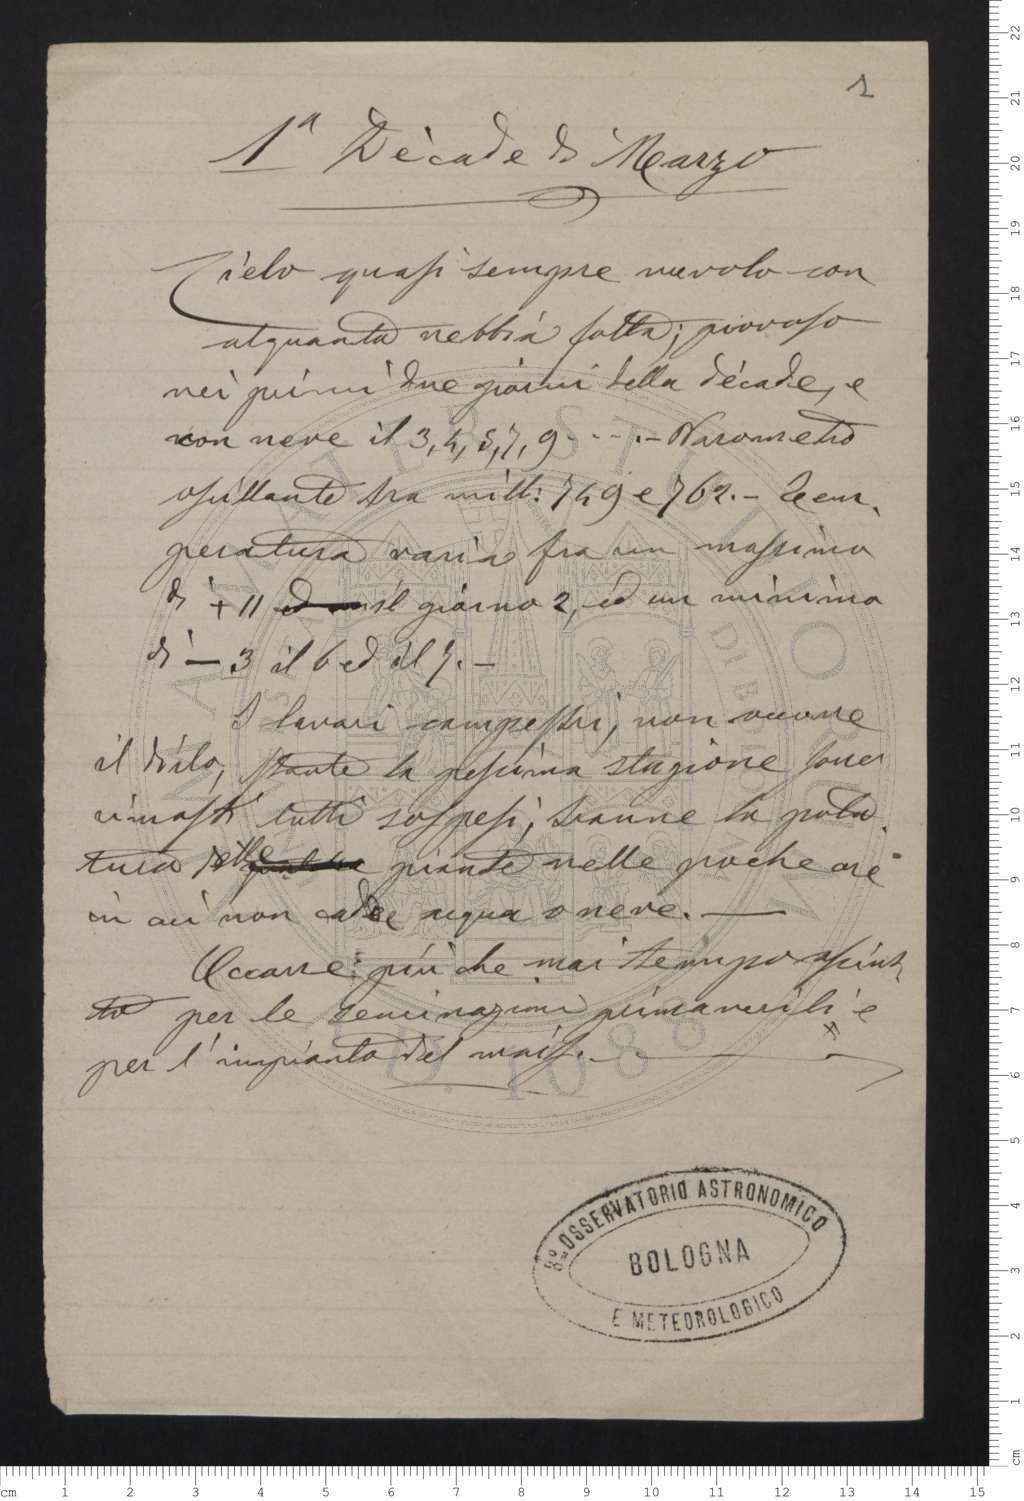 1
1ª Decade di Marzo
Cielo quasi sempre nuvolo con
alquanta nebbia folta; piovoso
nei primi due giorni della decade, e
con neve il 3, 4, 5, 7, 9 - - - .- Barometro
oscillante tra mill: 749 e 762. - Tem-
peratura varia fra un massimo
di + 11 il giorno 2, ed un minimo
di - 3 il 6 ed il 7. -
I lavori campestri, non occorre
il dirlo, stante la pessima stagione sono
rimasti tutti sospesi, tranne la pota-
tura delle piante nelle poche ore
in cui non cadde acqua o neve. —
Occorre più che mai tempo asciut-
to per le seminagioni primaverili e
per l'impianto del mais. -
Rº OSSERVATORIO ASTRONOMICO
BOLOGNA
E METEOROLOGICO
ALMA MATER STUDIORUM
A.D. 1088